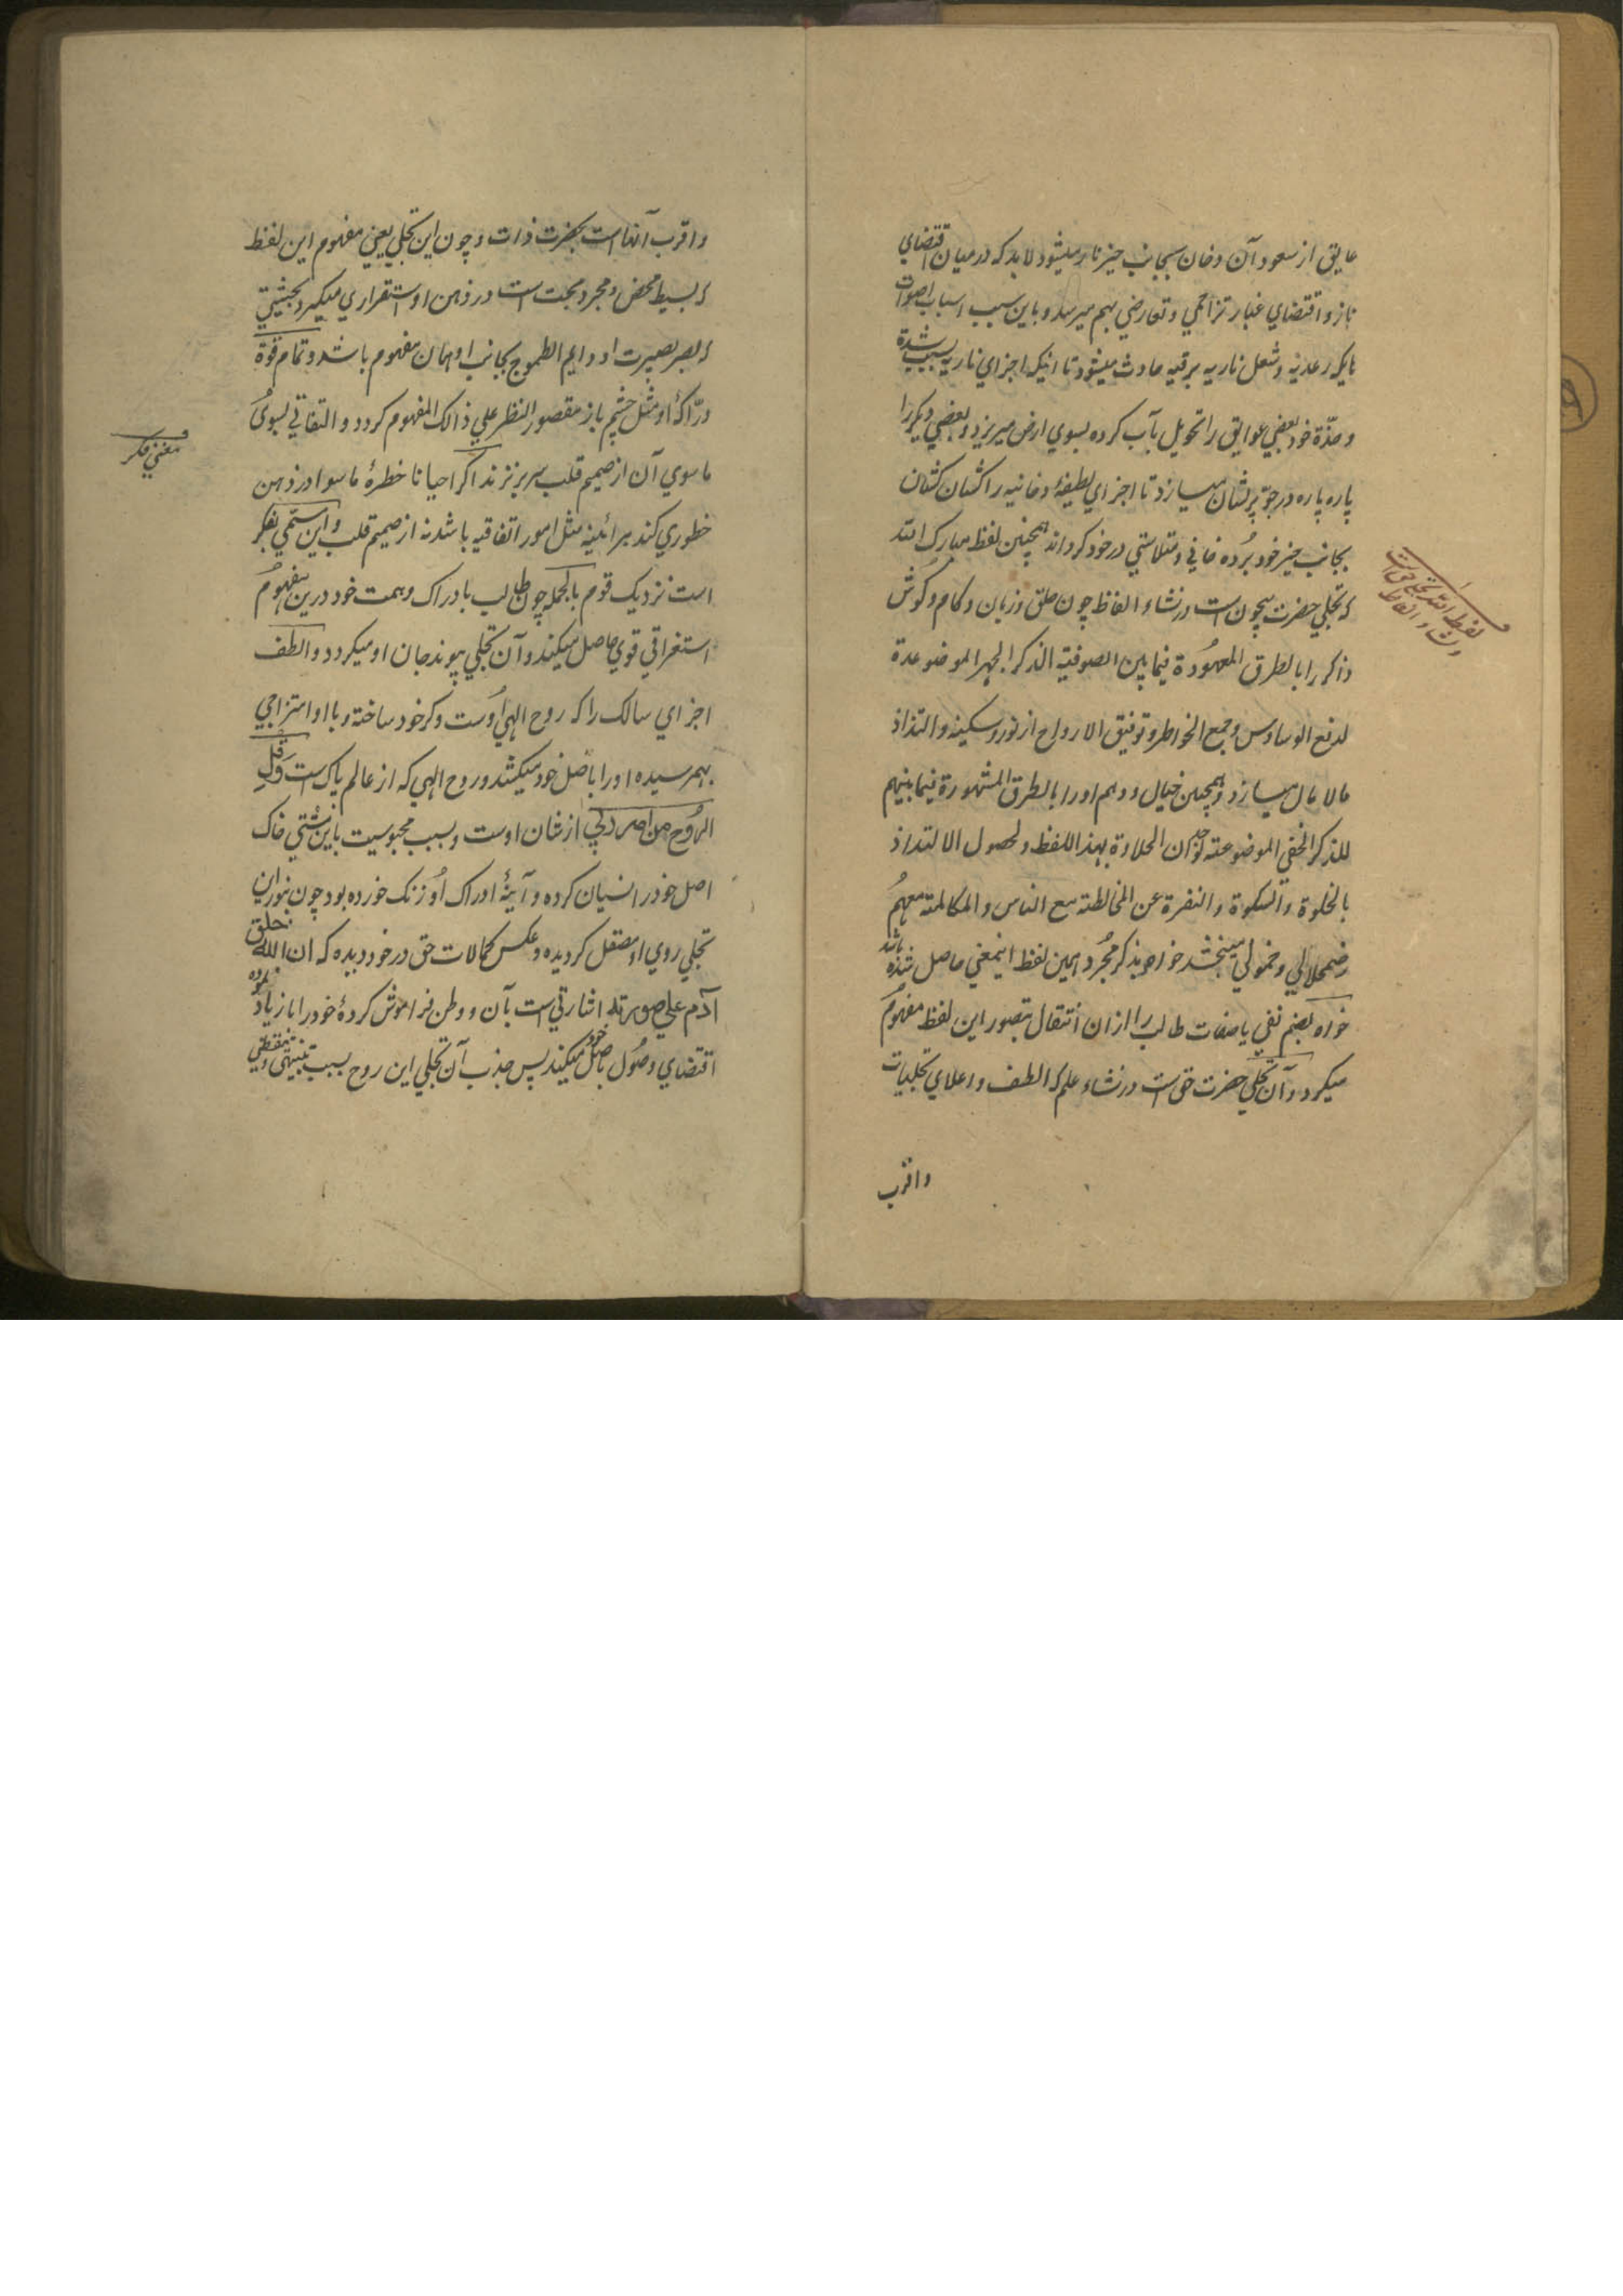 عایق از صعود آن دخان بجانب حیز نار میشود لابد که در میان اقتضای
نار و اقتضای غبار تزاحمی و تعارضی بهم میرسد و باین سبب اسباب اصوات
هایکه رعدیه و شعل ناریه برقیه حادث میشود تا اینکه اجزای ناریه بسبب شدة
و حدّة خود بعضی عوایق را تحویل بآب کرده بسوی ارض میریزد و بعضی دیکر را
پاره پاره در جوّ پریشان میسازد تا اجزای لطیفهٔ دخانیه را کشان کشان
بجانب حیز خود بُرده فانی و متلاشی در خود کرداند همچنین لفظ مبارک الله
که تجلی حضرت بیچون است در نشاء الفاظ چون حلق و زبان و کام و کوش
ذاکر را بالطرق المعهُودة فیما بین الصوفیة الذکر الجهر الموضوعة
لدفع الوساوس و جمع الخواطر و توفیق الارواح از نور و سکینه و التذاذ
مالامال میسازد و همچنین خیال و وهم او را بالطرق المشهورة فیما بینهم
للذکر الخفی الموضوعة لوجدان الحلاوة بهذا اللفظ و لحصول الالتذاذ
بالخلوة والسکوة والنفرة عن المخالطة مع الناس والمکالمة معهُم
اضمحلالی و خمولی میبخشد خواه بذکر مجُرد همین لفظ اینمعنی حاصل شده باشد
خواه بضم نفی یا صفات طالب را ازان انتقال بتصور این لفظ مفهُوم
میکردد و آن تجلی حضرت حق است در نشاء علم که الطف و اعلای تجلیات
واقرب
لفظ الله تجلی حق است
در نشاء الفاظ
واقرب آنهاست بحضرت ذات و چون این تجلی یعنی مفهوم این لفظ
که بسیط محض و مجرد بحت است در ذهن او استقراری میکیرد بحیثیتی
که بصر بصیرت او دایم الطموح بجانب او همان مفهوم باشد و تمام قوة
درّاکهٔ او مثل چشم باز مقصور النظر علی ذالک المفهوم کردد و التفاتی بسوئ
ماسوی آن از صمیم قلب سر بر نزند اکر احیانا خطرهٔ ماسوا در ذهن
خطوری کند هر آئینه مثل امور اتفاقیه باشد نه از صمیم قلب و این مسمّی بفکر
است نزدیک قوم بالجمله چون طالب بادراک و همت خود درین مفهُوم
استغراقی قوی حاصل میکند و آن تجلی پیوند جان او میکردد و الطف
اجزای سالک را که روح الهیٔ اوست وکر خود ساخته و با او امتزاجی
بهمرسیده او را باصل خود میکشد و روح الهی که از عالم پاک است و قُل
الرُّوح من امر ربّی از شان اوست و بسبب محبوسیت باین مشتی خاک
اصل خود را نسیان کرده و آیینهٔ ادراک اُو زنک خورده بود چون بنور این
تجلی روی او مصقل کردیده و عکس کمالات حق در خود دیده که ان الله خلق
آدم علی صورته اشارتی است بآن و وطن فراموش کردهٔ خود را باز یاد نموده
اقتضای وصُول باصل خود میکند پس جذب آن تجلی این روح بسبب تنبهی و تیقظی
معنی فکر